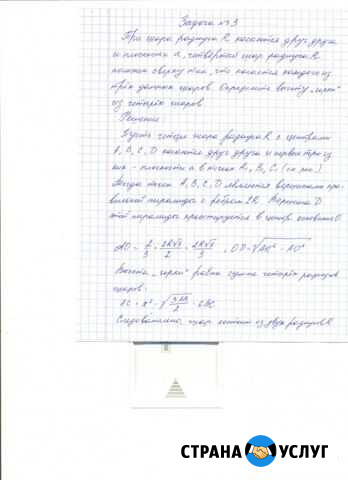 Задача №3
Три шара радиуса R касаются друг друга
и плоскости α, четвёртый шар радиуса R
положен сверху так, что касается каждого из
трёх данных шаров. Определите высоту „горки"
из четырёх шаров.
Решение
Пусть четыре шара радиуса R с центрами
A, B, C, D касаются друг друга и первые три из
них - плоскости α в точках A₁, B₁, C₁ (см рис.)
Тогда точки A, B, C, D являются вершинами пра-
вильной пирамиды с ребром 2R. Вершина D
этой пирамиды проектируется в центр основания O.
Высота „горки" равна сумме четырёх радиусов
шаров:
Следовательно, шар состоит из двух радиусов R
СТРАНА УСЛУГ